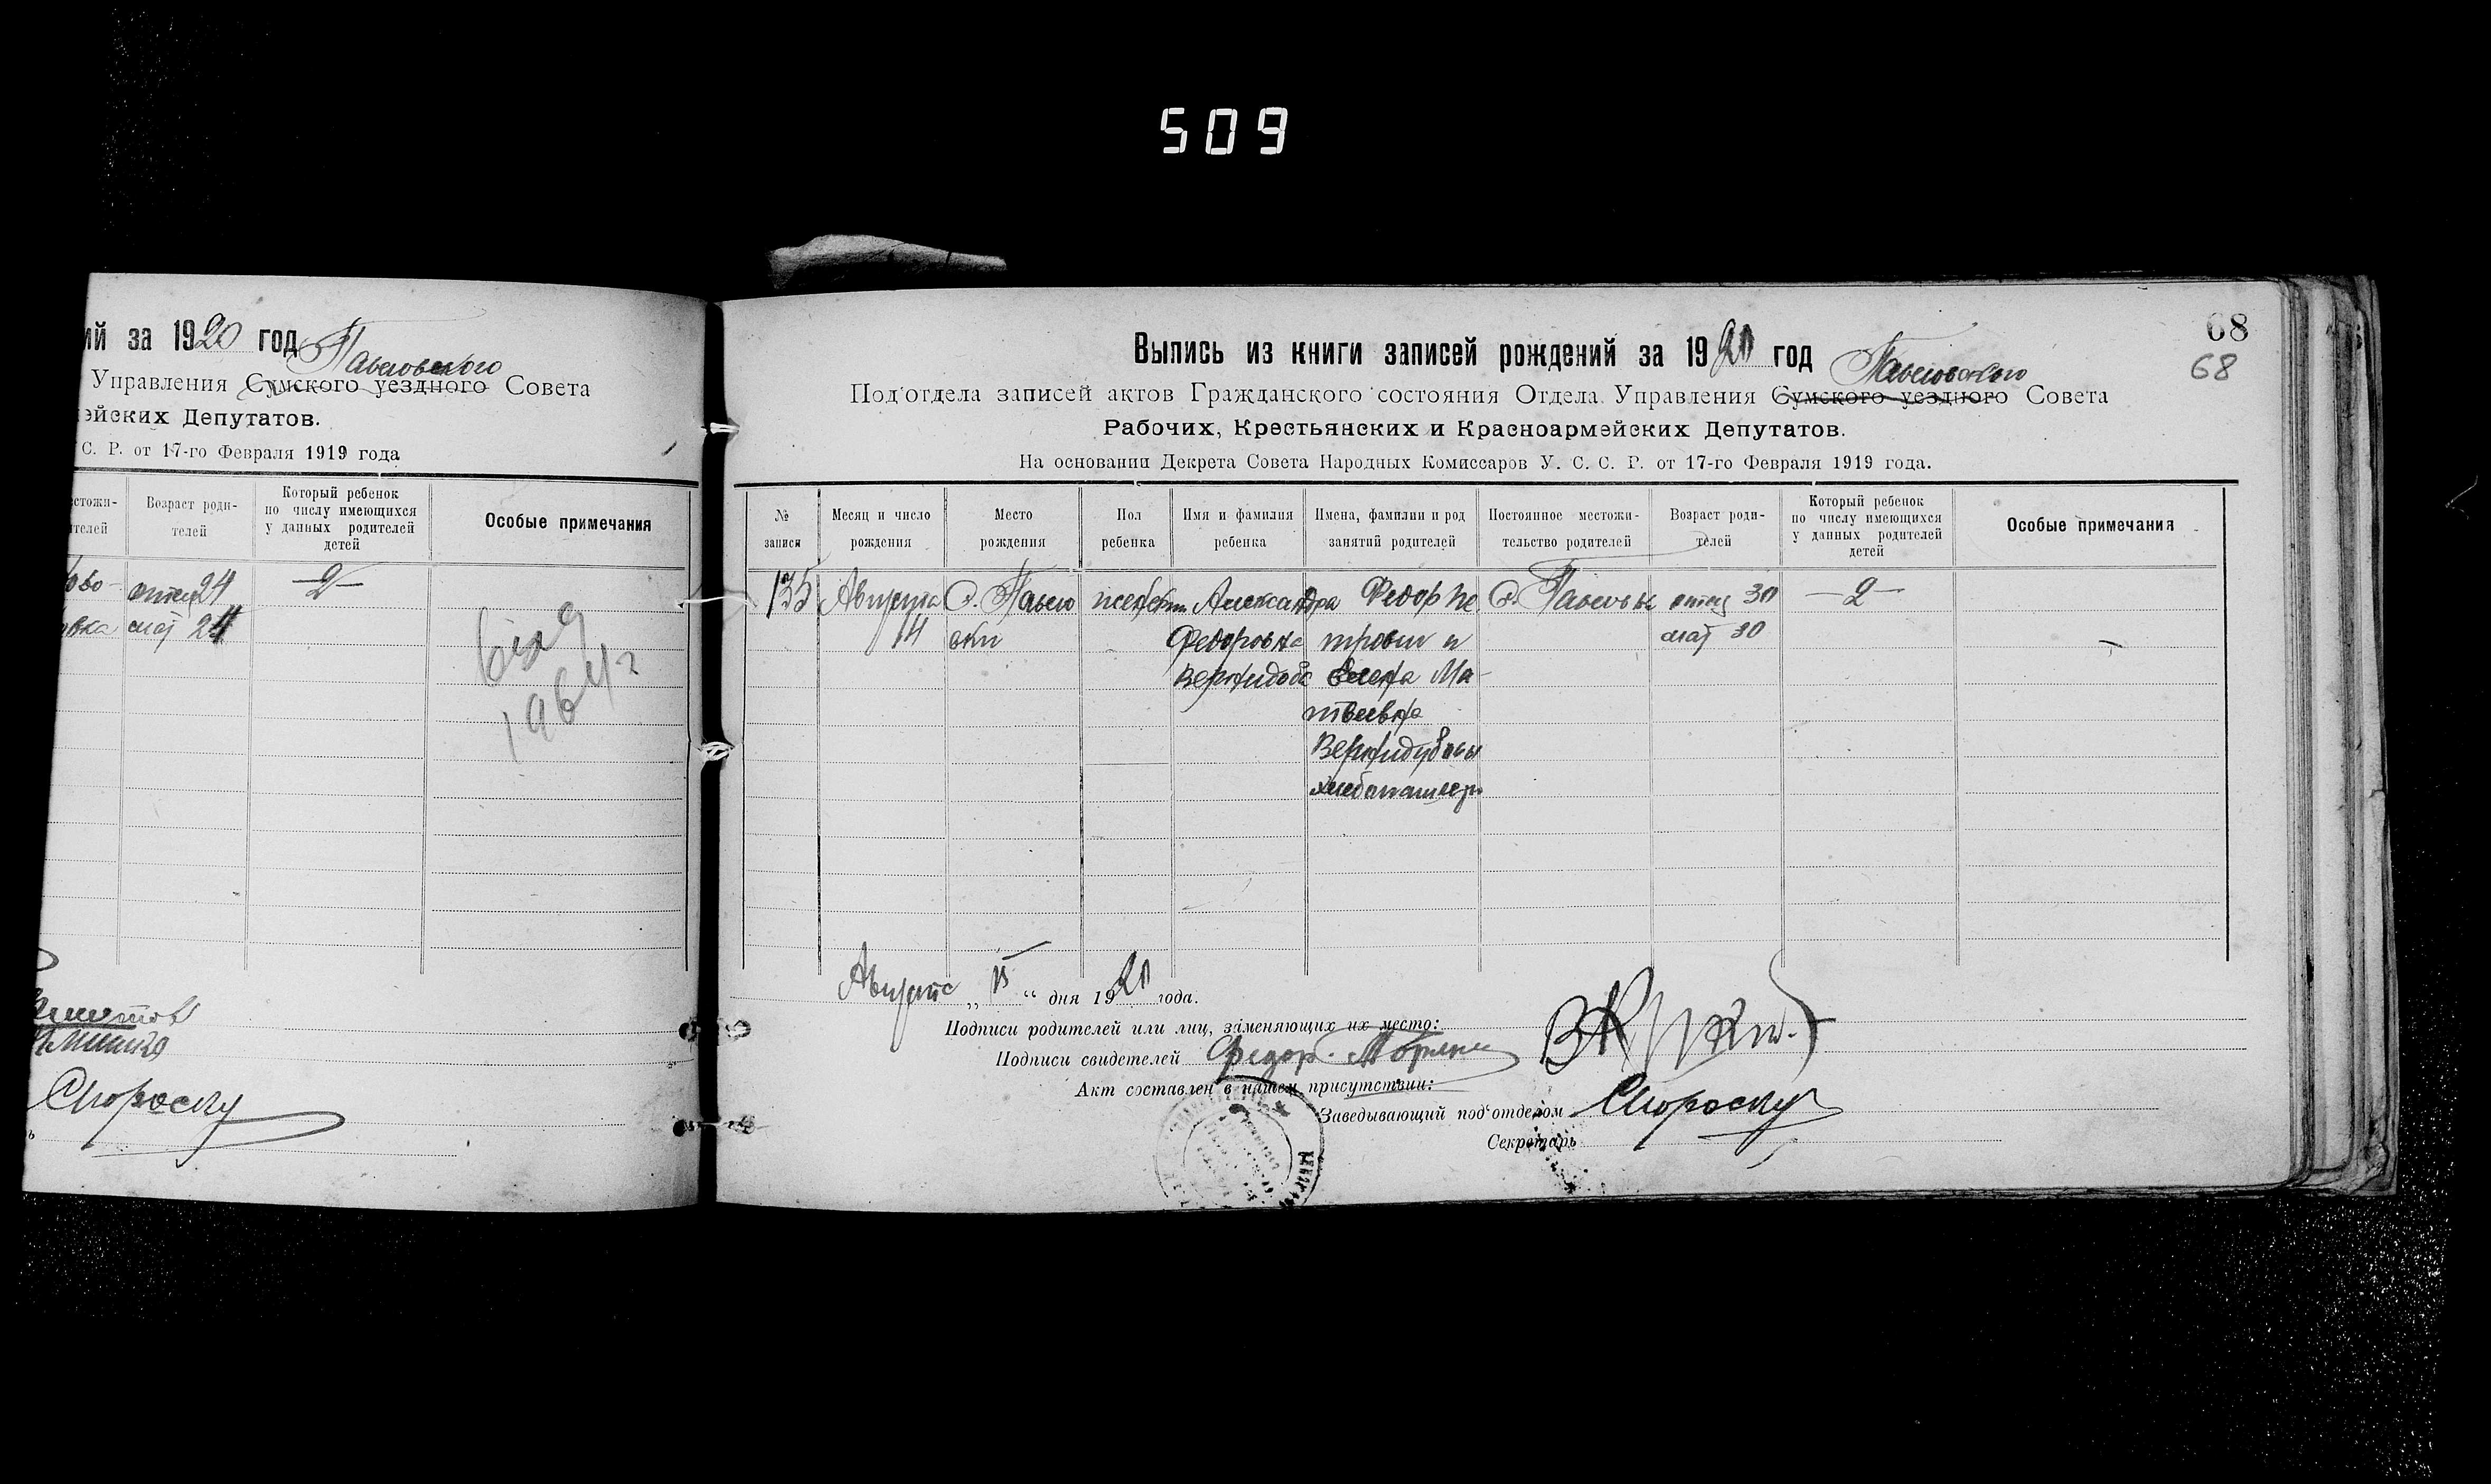 509
ий за 1920 год
Павловского
Управления Сумского уездного Совета
ейских Депутатов.
С. Р. от 17-го Февраля 1919 года
стожи-
телей
Возраст роди-
телей
Который ребенок
по числу имеющихся
у данных родителей
детей
Особые примечания
отец 24
—2—
овка мат 24
1964г
68
68
Выпись из книги записей рождений за 1920 год
Павловского
Под'отдела записей актов Гражданского состояния Отдела Управления Сумского уездного Совета
Рабочих, Крестьянских и Красноармейских Депутатов.
На основании Декрета Совета Народных Комиссаров У. С. С. Р. от 17-го Февраля 1919 года.
№
записи
Месяц и число
рождения
Место
рождения
Пол
ребенка
Имя и фамилия
ребенка
Имена, фамилии и род
занятий родителей
Постоянное местожи-
тельство родителей
Возраст роди-
телей
Который ребенок
по числу имеющихся
у данных родителей
детей
Особые примечания
135
Августа
14
с. Павло
вки
женский
Александра
Федоровна
Федор Пе
трович и
Елена Ма-
твеевна
Вернидубовы
хлебопашец
с. Павловка
отец 30
мат 30
—2—
Августа „ 15 “ дня 1920 года.
Подписи родителей или лиц, заменяющих их место:
Подписи свидетелей Федор
Акт составлен в нашем присутствии:
Заведывающий под'отделом
Секретарь